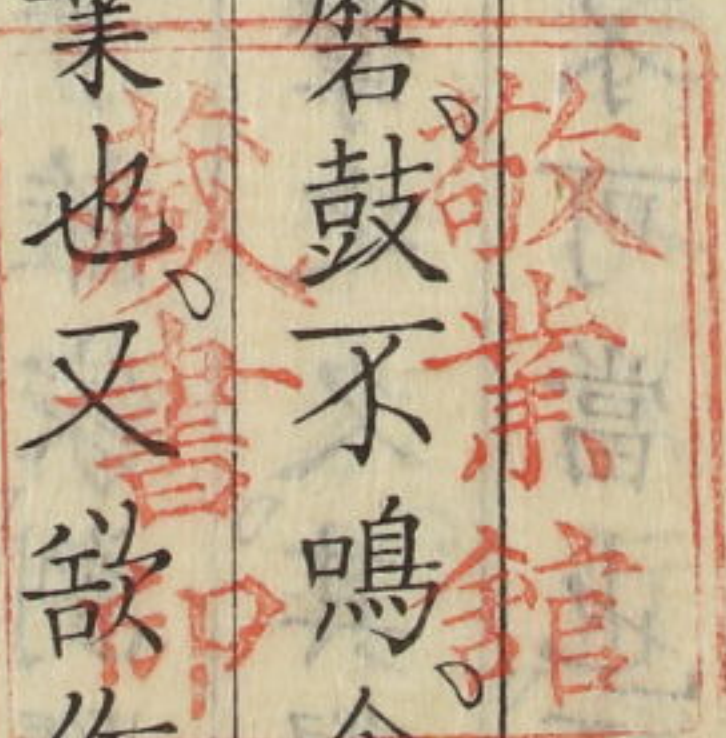 磬、鼓不鳴、
業也、又欲
敬業館
藏書印